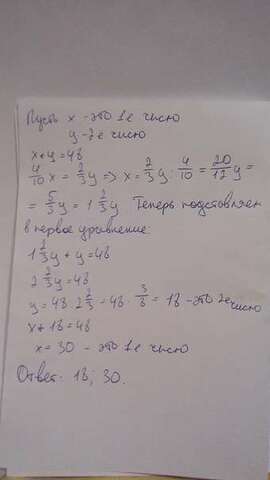 Пусть x - это 1е число
y - 2е число
x+y=48
4/10 x = 2/3 y => x = 2/3 y : 4/10 = 20/12 y =
= 5/3 y = 1 2/3 y Теперь подставляем
в первое уравнение:
1 2/3 y + y = 48
2 2/3 y = 48
y = 48 : 2 2/3 = 48 · 3/8 = 18 - это 2е число
x + 18 = 48
x = 30 - это 1е число
Ответ: 18; 30.